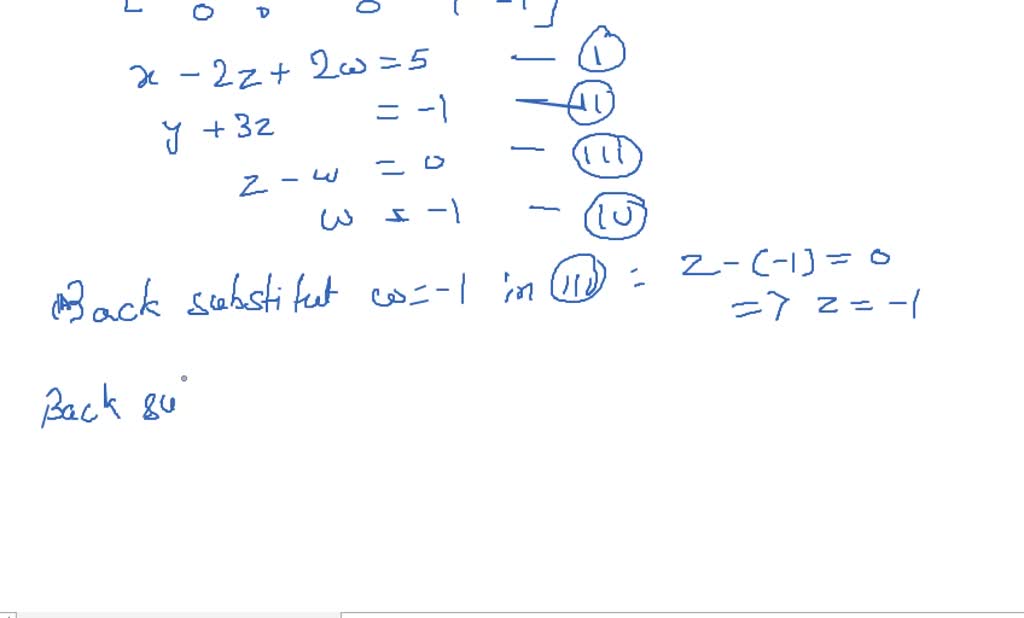 0 0 0 1 -1]
x - 2z + 2w = 5 — (I)
y + 3z = -1 — (II)
z - w = 0 — (III)
w = -1 — (IV)
Back substitut w=-1 in (III) : z-(-1) = 0
=> z = -1
Back su